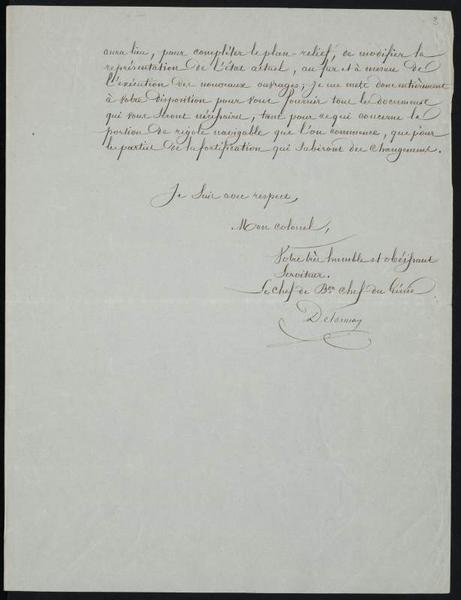 aura lieu, pour compléter le plan relief, de modifier la
représentation de l'état actuel, au fur et à mesure de
l'exécution des nouveaux ouvrages; je me mets donc entièrement
à votre disposition pour vous fournir tous les documens
qui vous seront nécessaires, tant pour ce qui concerne la
portion de rigole navigable que l'on commence, que pour
les parties de la fortification qui subiront des changemens.
Je suis avec respect,
Mon colonel,
Votre très humble et obéissant
Serviteur.
Le Chef de Bon Chef du Génie